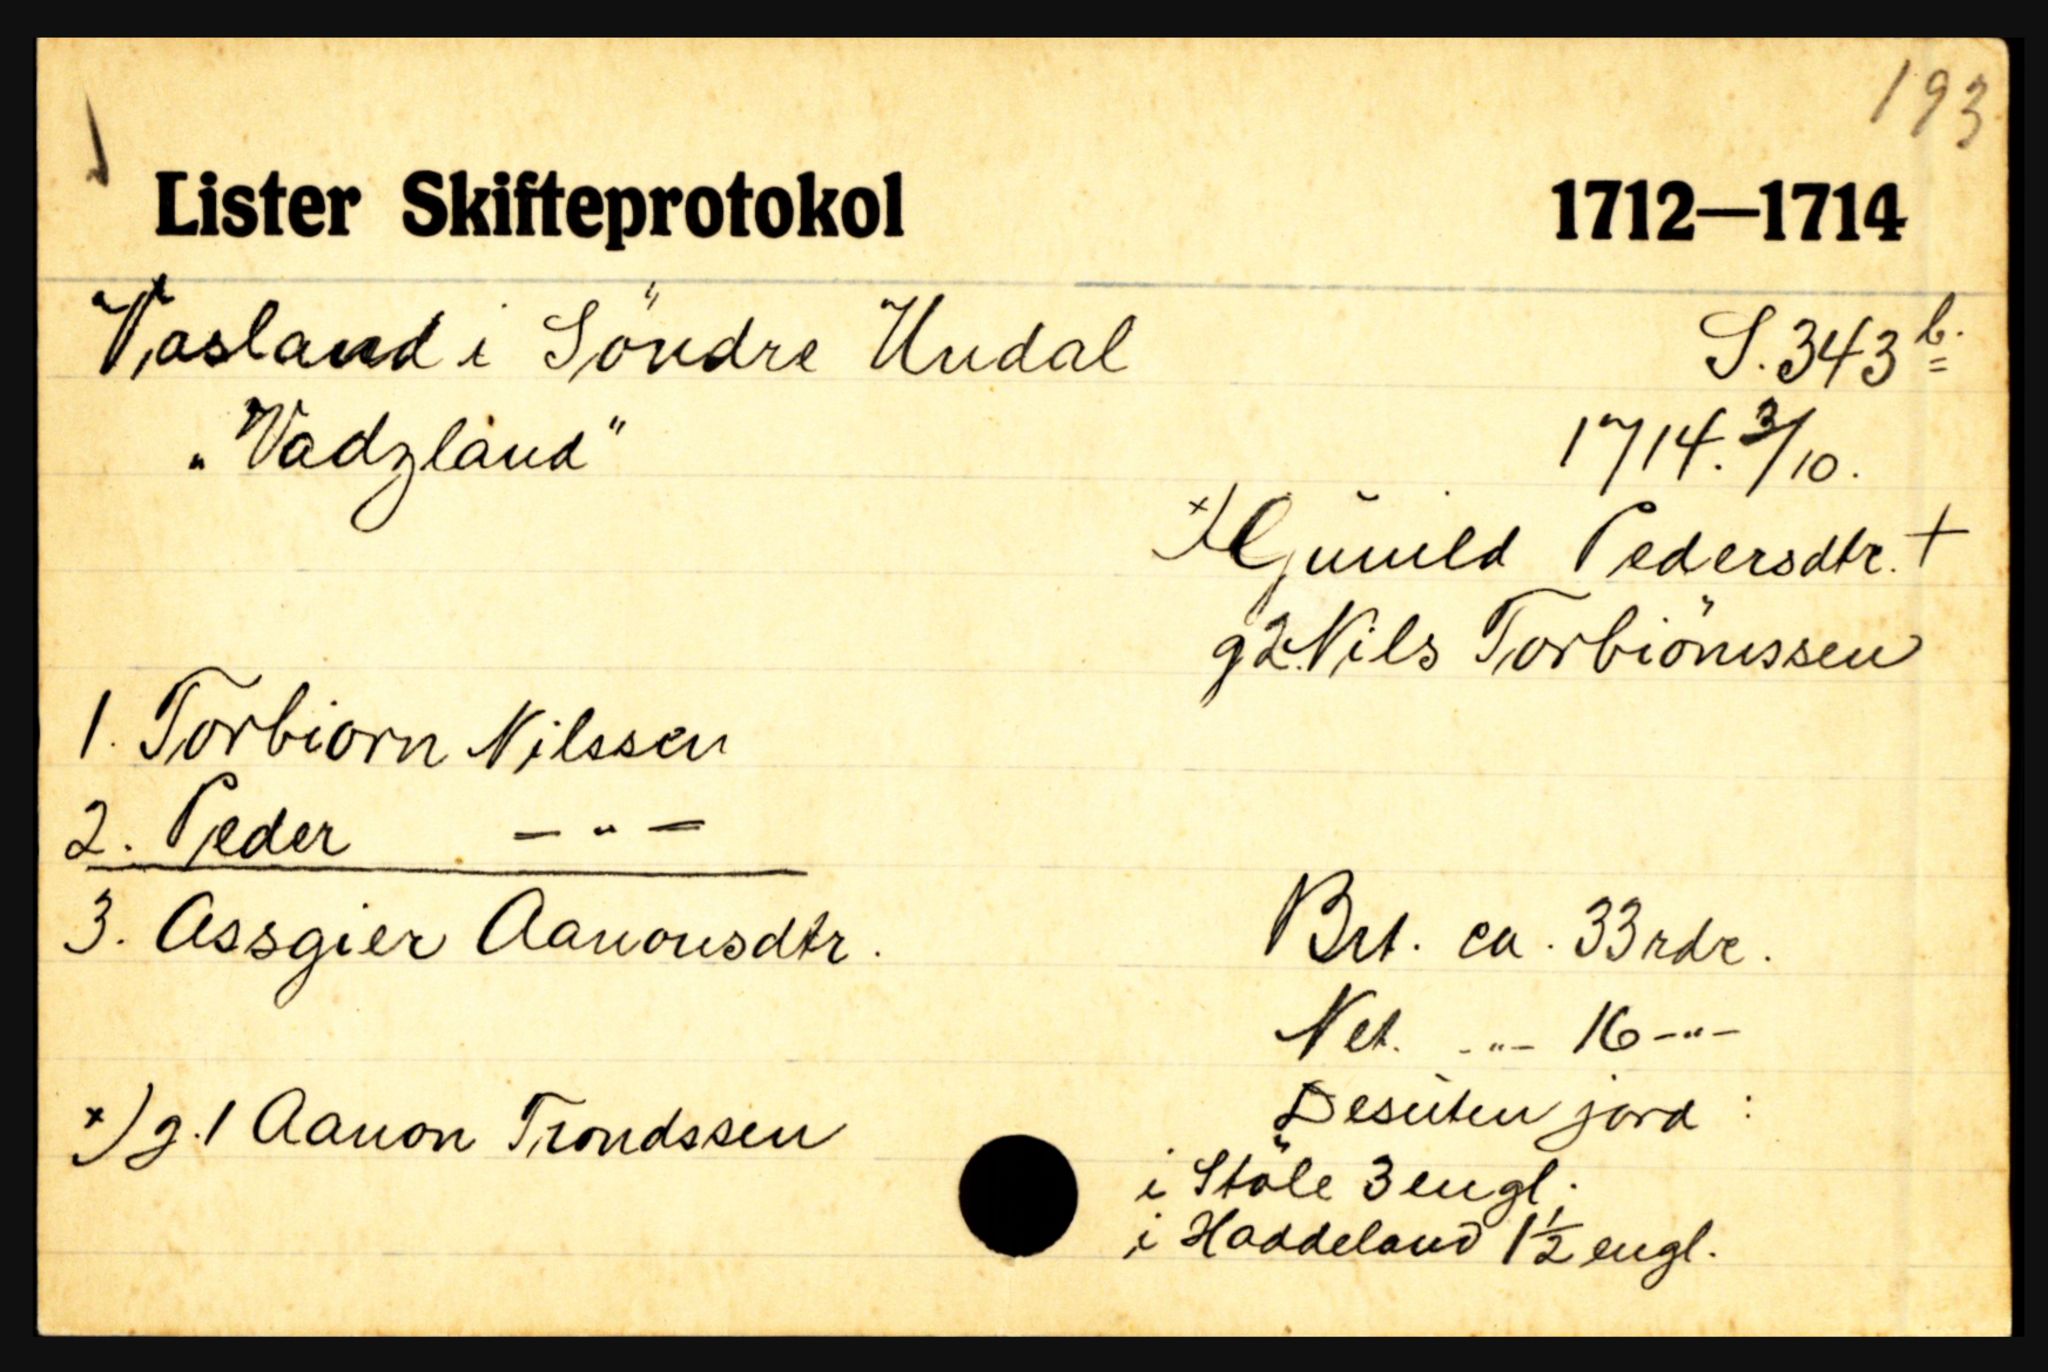 193
Lister Skifteprotokol 1712—1714
Vasland i Söndre Undal S. 343 b.
„Vadzland" 1714. 3/10.
x) Gunild Pedersdtr. +
g2. Nils Torbiörnssen
1. Torbiorn Nilssen
2. Peder — " —
3. Assgier Aanonsdtr.
Brt. ca. 33 rdr.
Net. - " - 16 - " -
x) g. 1 Aanon Trondssen
Desuten jord :
i Stöle 3 engl.
i Haddeland 1½ engl.